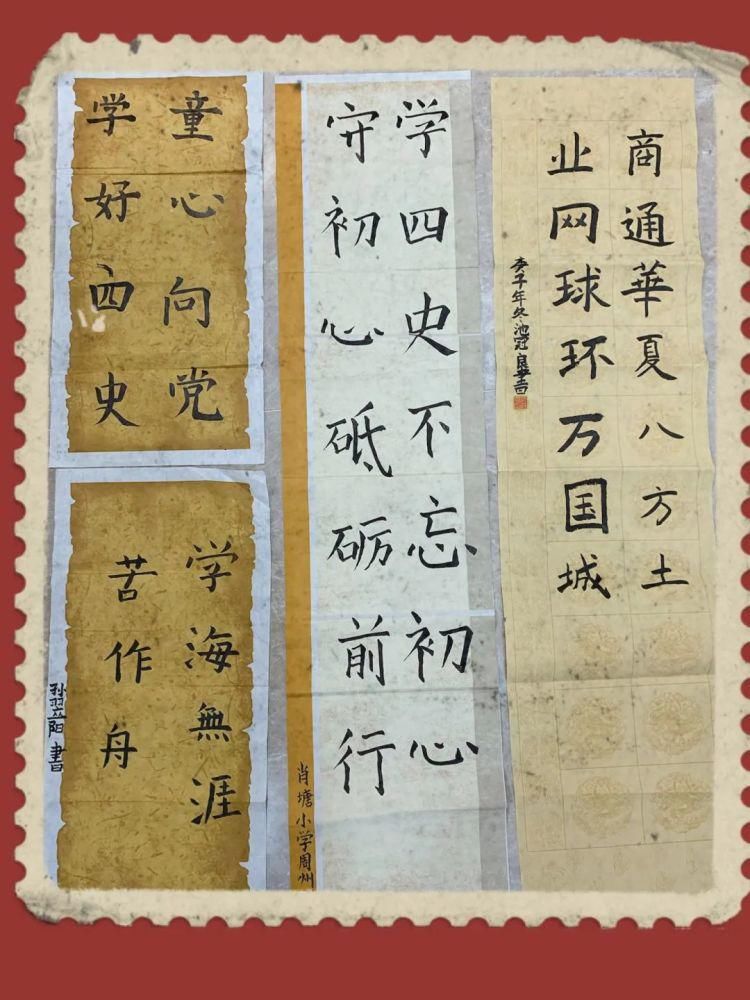 商通華夏八方土
业网球环万国城
庚子年冬池冠良書
学四史不忘初心
守初心砥砺前行
肖塘小学周州
童心向党
学好四史
学海無涯
苦作舟
孙翌阳書